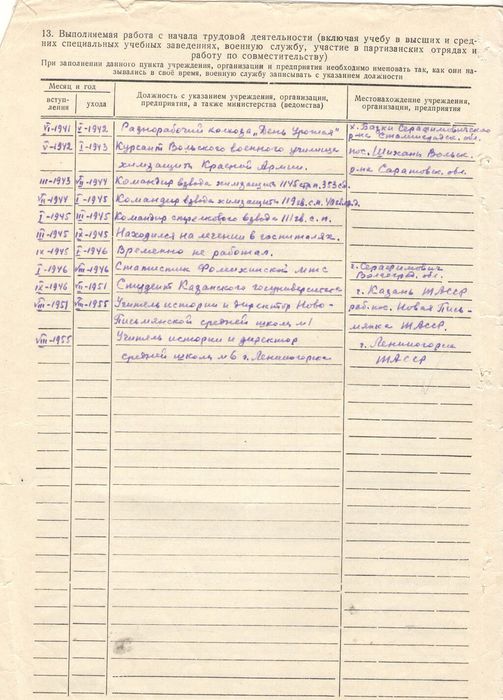 13. Выполняемая работа с начала трудовой деятельности (включая учебу в высших и сред-
них специальных учебных заведениях, военную службу, участие в партизанских отрядах и
работу по совместительству)
При заполнении данного пункта учреждения, организации и предприятия необходимо именовать так, как они на-
зывались в своё время, военную службу записывать с указанием должности
Месяц и год
вступ-
ления
ухода
Должность с указанием учреждения, организации,
предприятия, а также министерства (ведомства)
Местонахождение учреждения,
организации, предприятия
VI-1941 V-1942 Разнорабочий колхоза „День Урожая" х. Базки Серафимовичского
р-на Сталинградск. обл.
V-1942 I-1943 Курсант Вольского военного училища пос. Шиханы Вольск.
химзащиты Красной Армии. р-на Саратовск. обл.
III-1943 VII-1944 Командир взвода химзащиты 1145 стр. п. 353 сд.
VII-1944 I-1945 Командир взвода химзащиты 119 гв. с.п.
I-1945 III-1945 Командир стрелкового взвода 111 гв. с. п.
III-1945 IX-1945 Находился на лечении в госпиталях.
IX-1945 I-1946 Временно не работал.
I-1946 VIII-1946 Статистик Фоминхинской мтс г. Серафимович
Волгогр. обл.
IX-1946 VII-1951 Студент Казанского госуниверситета г. Казань ТАССР
VIII-1951 VIII-1955 Учитель истории и директор Ново- раб. пос. Новая Пись-
Письмянской средней школы №1 мянка ТАССР.
VIII-1955 Учитель истории и директор г. Лениногорск
средней школы №6 г. Лениногорска ТАССР